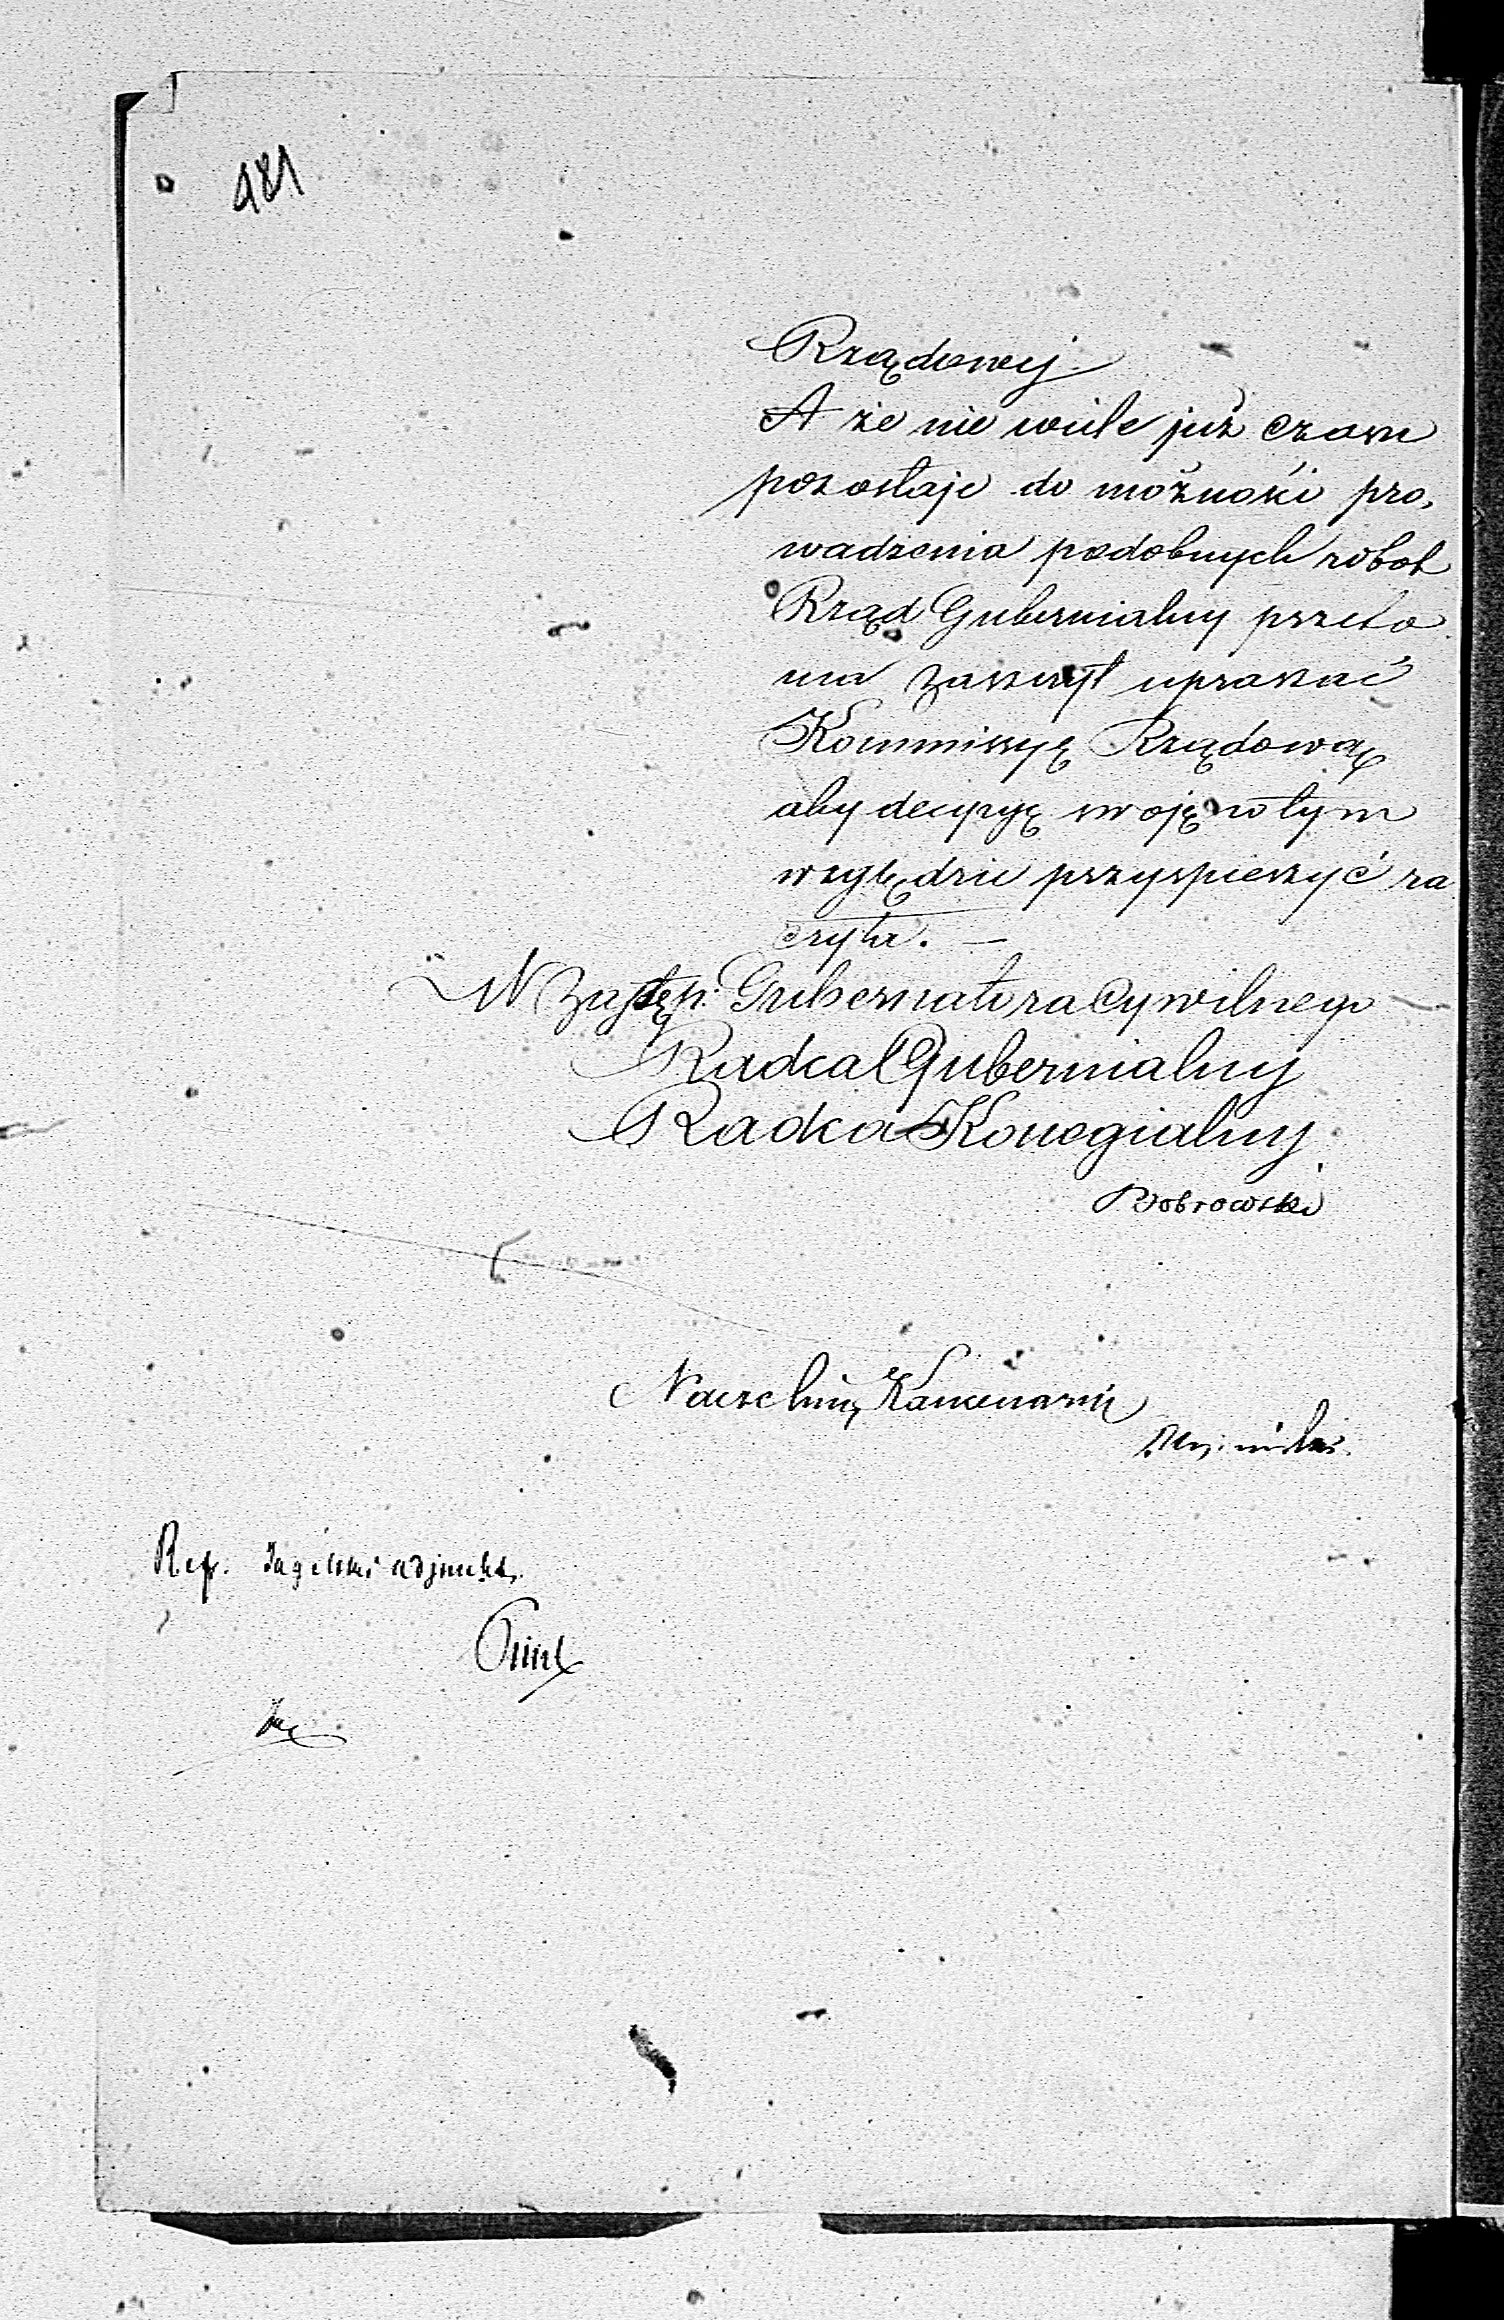 481
Rządowej
A że nie wiele już czasu
pozostaje do możności pro,
wadzenia podobnych robot
Rząd Gubernialny przeto
ma zaszczyt upraszać
Kommissyę Rządową
aby decyzyę swoję w tym
względzie przyspieszyć ra
czyła. —
W Zastęp: Gubernatora Cywilnego
Radca Gubernialny
Radca Kollegialny
Bobrowski
Naczelnik Kancellaryi
Ref. adjunkt